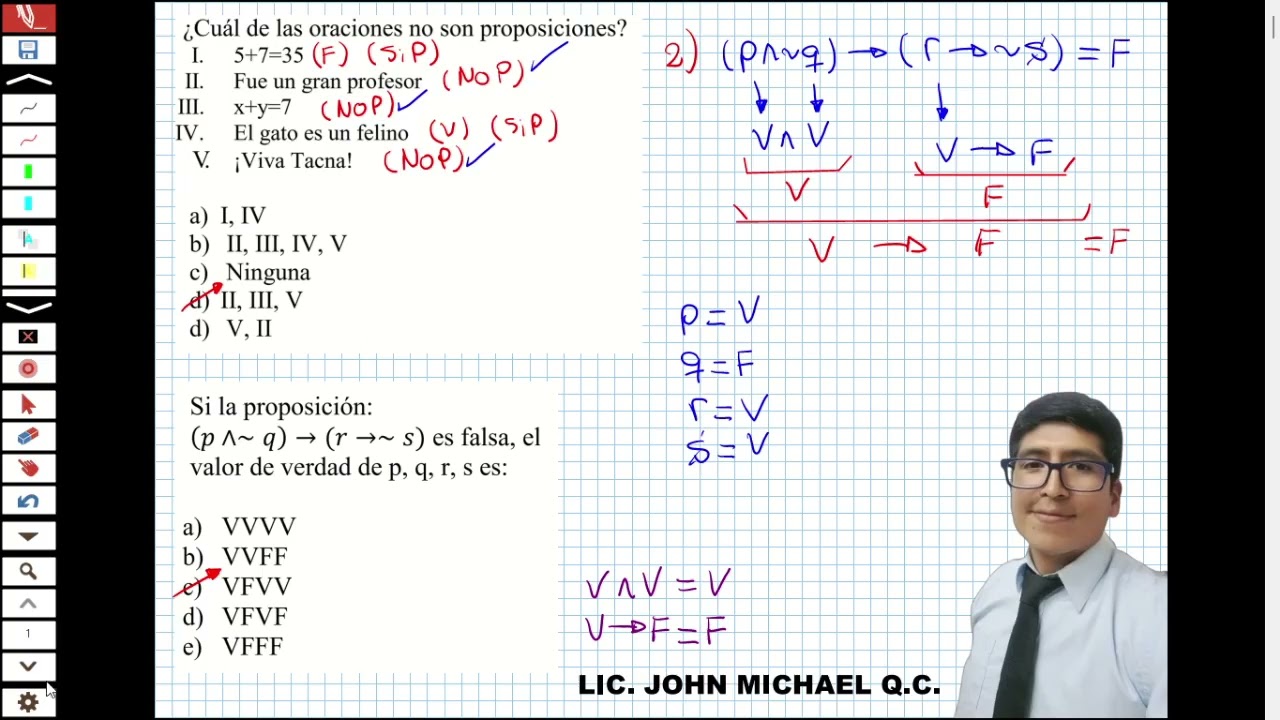 ¿Cuál de las oraciones no son proposiciones?
I. 5+7=35 (F) (Si P)
II. Fue un gran profesor (No P) ✓
III. x+y=7 (No P) ✓
IV. El gato es un felino (V) (Si P)
V. ¡Viva Tacna! (No P) ✓
a) I, IV
b) II, III, IV, V
c) Ninguna
d) II, III, V
d) V, II
Si la proposición:
(p ∧~ q) → (r →~ s) es falsa, el
valor de verdad de p, q, r, s es:
a) VVVV
b) VVFF
c) VFVV
d) VFVF
e) VFFF
2) (p∧~q) → (r → ~s) = F
V ∧ V V → F
V F
V → F = F
p = V
q = F
r = V
s = V
V ∧ V = V
V → F = F
LIC. JOHN MICHAEL Q.C.
1
A